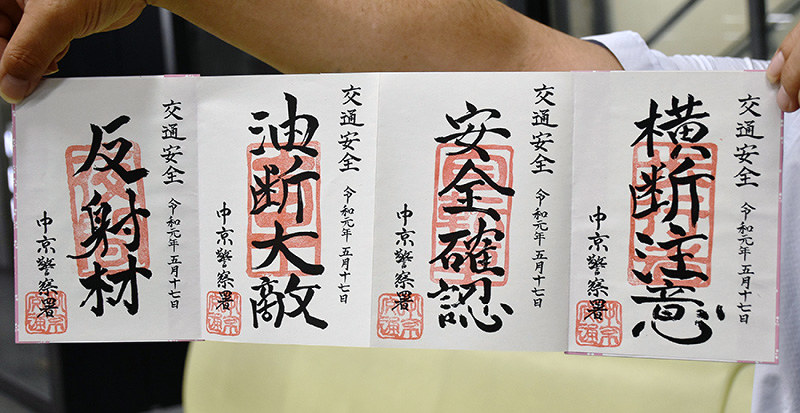 交通安全
令和元年五月十七日
横断注意
中京警察署
交通安全
令和元年五月十七日
安全確認
中京警察署
交通安全
令和元年五月十七日
油断大敵
中京警察署
交通安全
令和元年五月十七日
反射材
中京警察署